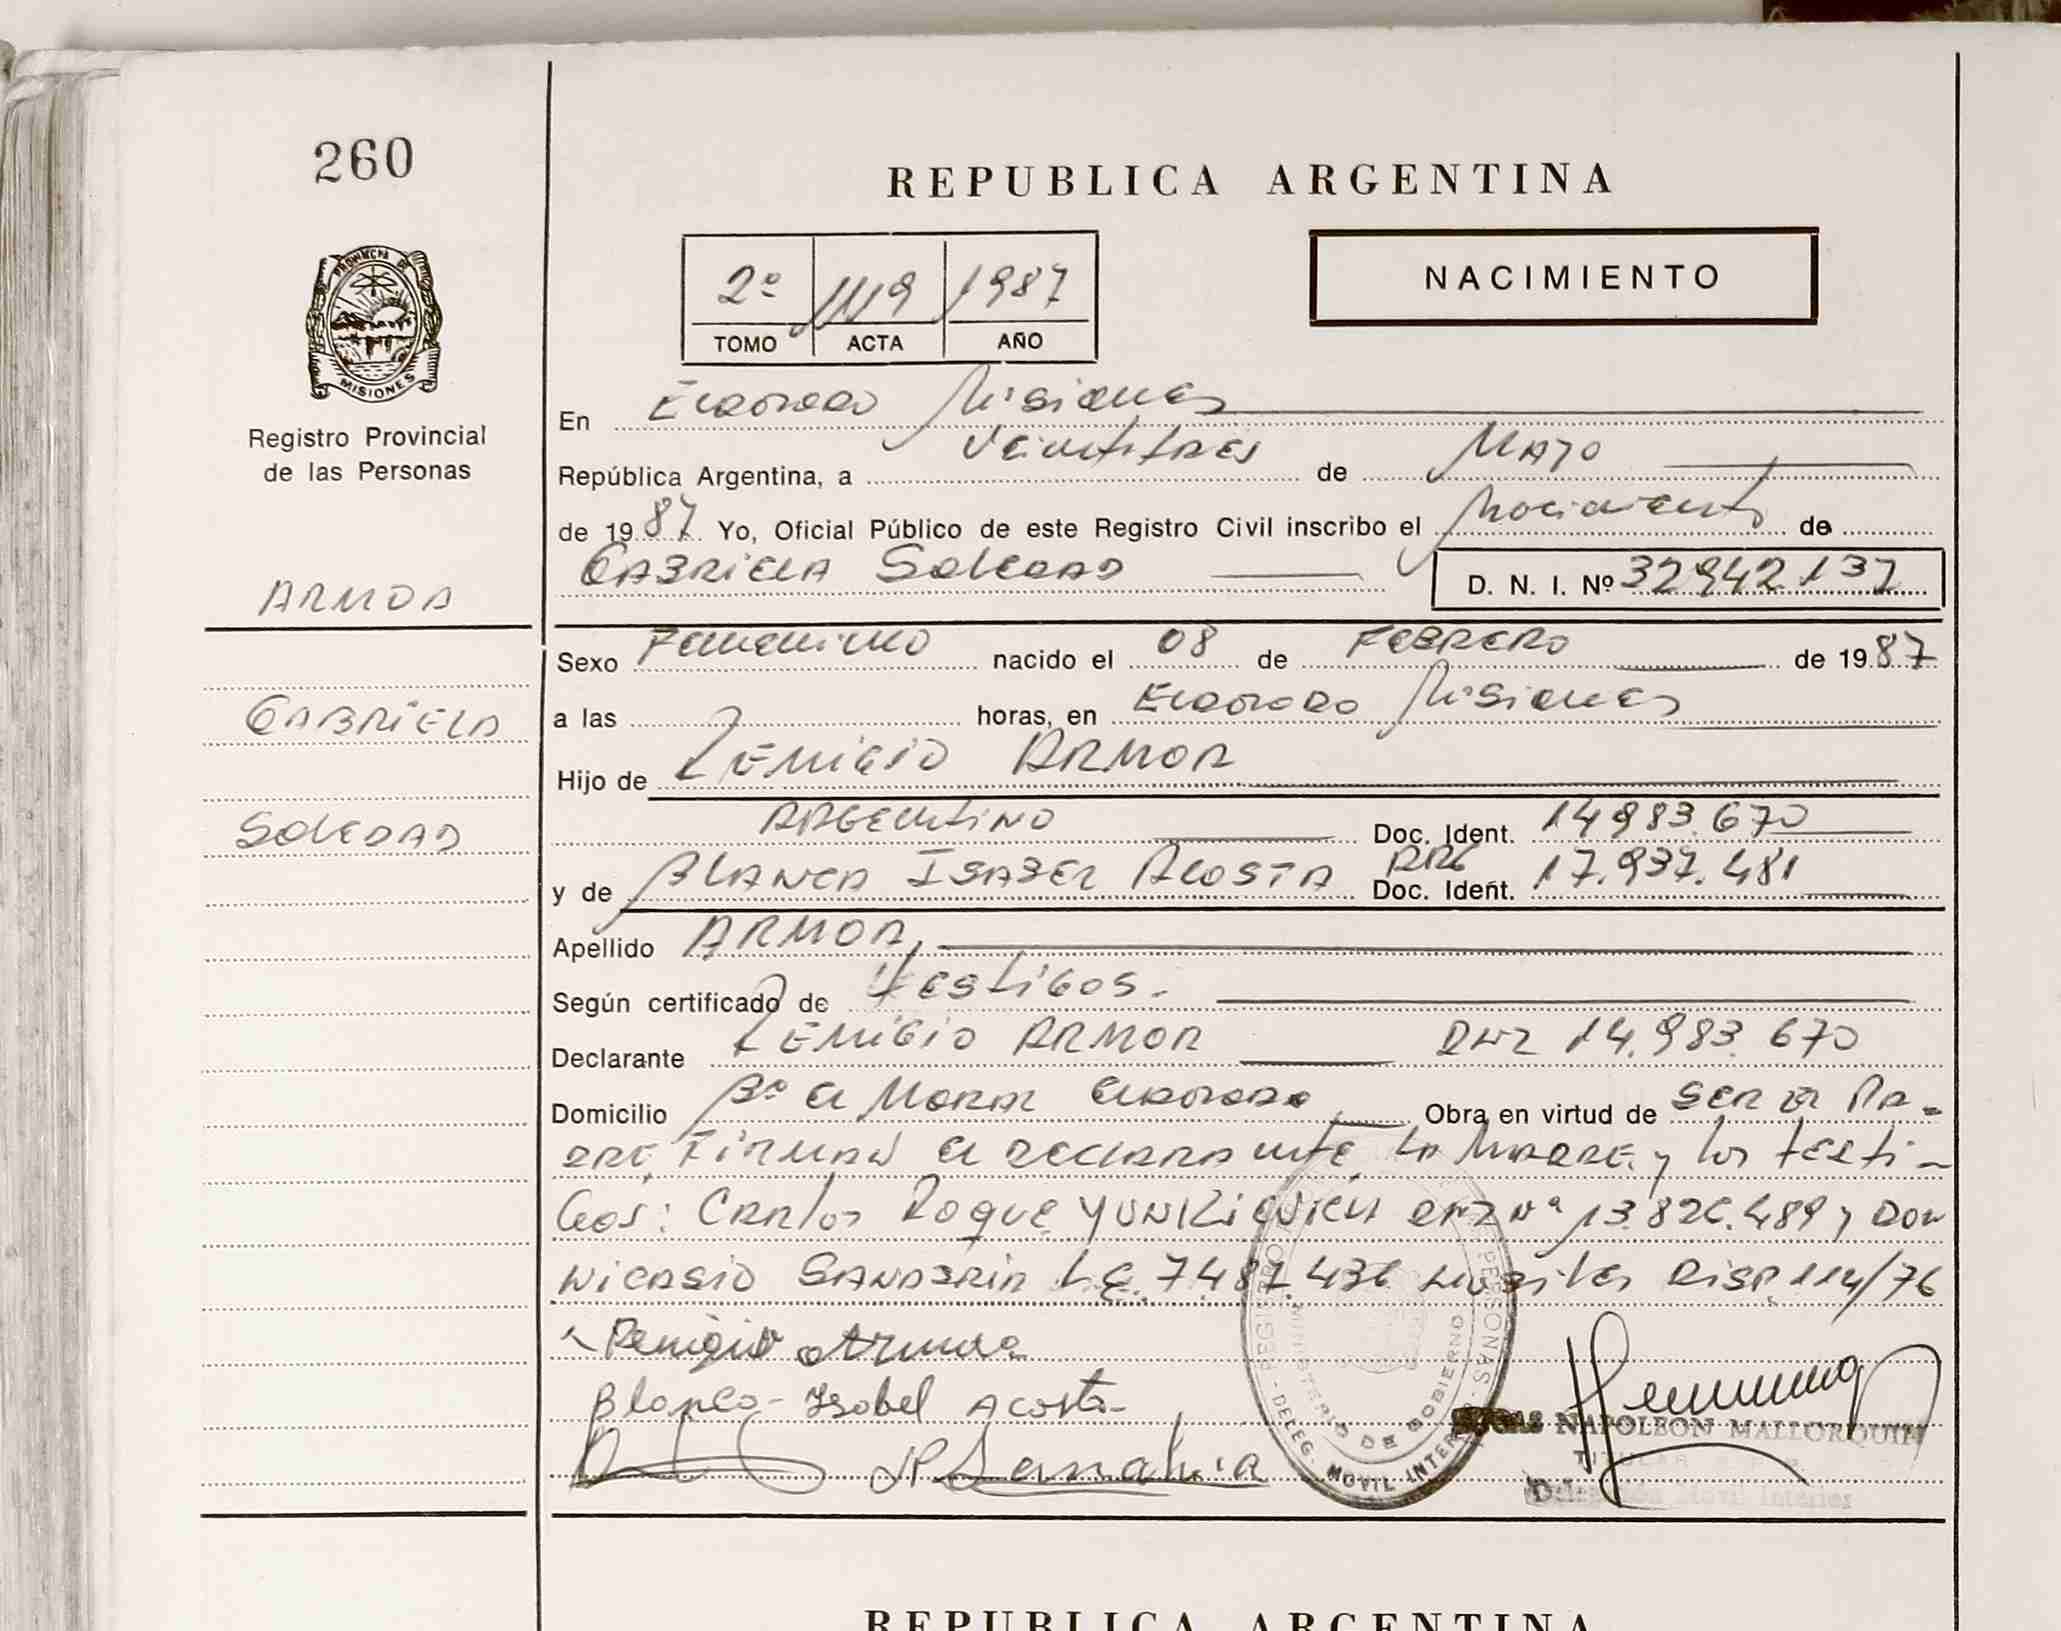 260
REPUBLICA ARGENTINA
PROVINCIA DE
MISIONES
Registro Provincial
de las Personas
2º 1119 1987
TOMO ACTA AÑO
NACIMIENTO
En Eldorado Misiones
República Argentina, a Veintitres de Mayo
de 1987 Yo, Oficial Público de este Registro Civil inscribo el Nacimiento de
Gabriela Soledad D. N. I. Nº 32942.137
ARMOA
Sexo Femenino nacido el 08 de Febrero de 1987
GABRIELA
a las horas, en Eldorado Misiones
Hijo de Remigio Armoa
SOLEDAD
Argentino Doc. Ident. 14983.670
y de Blanca Isabel Acosta Arg Doc. Ident. 17.937.481
Apellido ARMOA
Según certificado de testigos.
Declarante Remigio Armoa DNI 14.983.670
Domicilio Bº el Moral Eldorado Obra en virtud de ser el Pa-
dre, Firman el declarante, la Madre, y los testi-
gos: Carlos Roque YUNKIEVICH DNI Nº 13.826.489 y Don
Nicasio Sanabria L.E. 7.487.436 Disp. 114/76
Remigio Armoa
Blanca Isabel Acosta
N Sanabria
REGISTRO PERSONAS
MINISTERIO DE GOBIERNO
DELEG. MOVIL INTER
NAPOLEON MALLORQUIN
TITULAR
Delegación Móvil Interior
REPUBLICA ARGENTINA